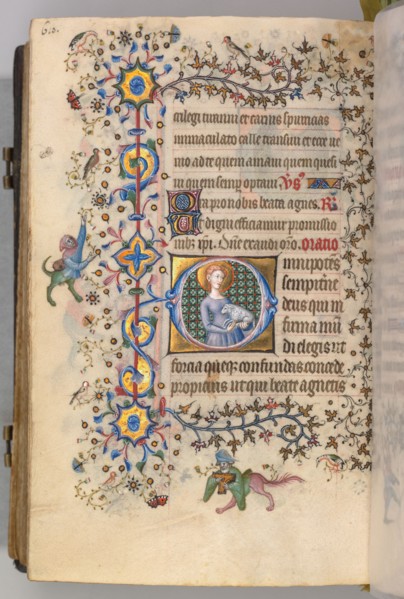 cilegi tiranni et carnis spurcicias
inmaculato calle transivi et ecce ve
nio ad te quem amavi quem quesi
vi quem semp optavi. Vs
Ora pro nobis beata agnes. R
Ut digni efficiamur promissio
nibz xpi. Dne exaudi oro. oratio
Omnipotens
sempiterne
deus qui in
firma mu
di elegis ut
forcia queqz confundas concede
propicius ut qui beate agnetis